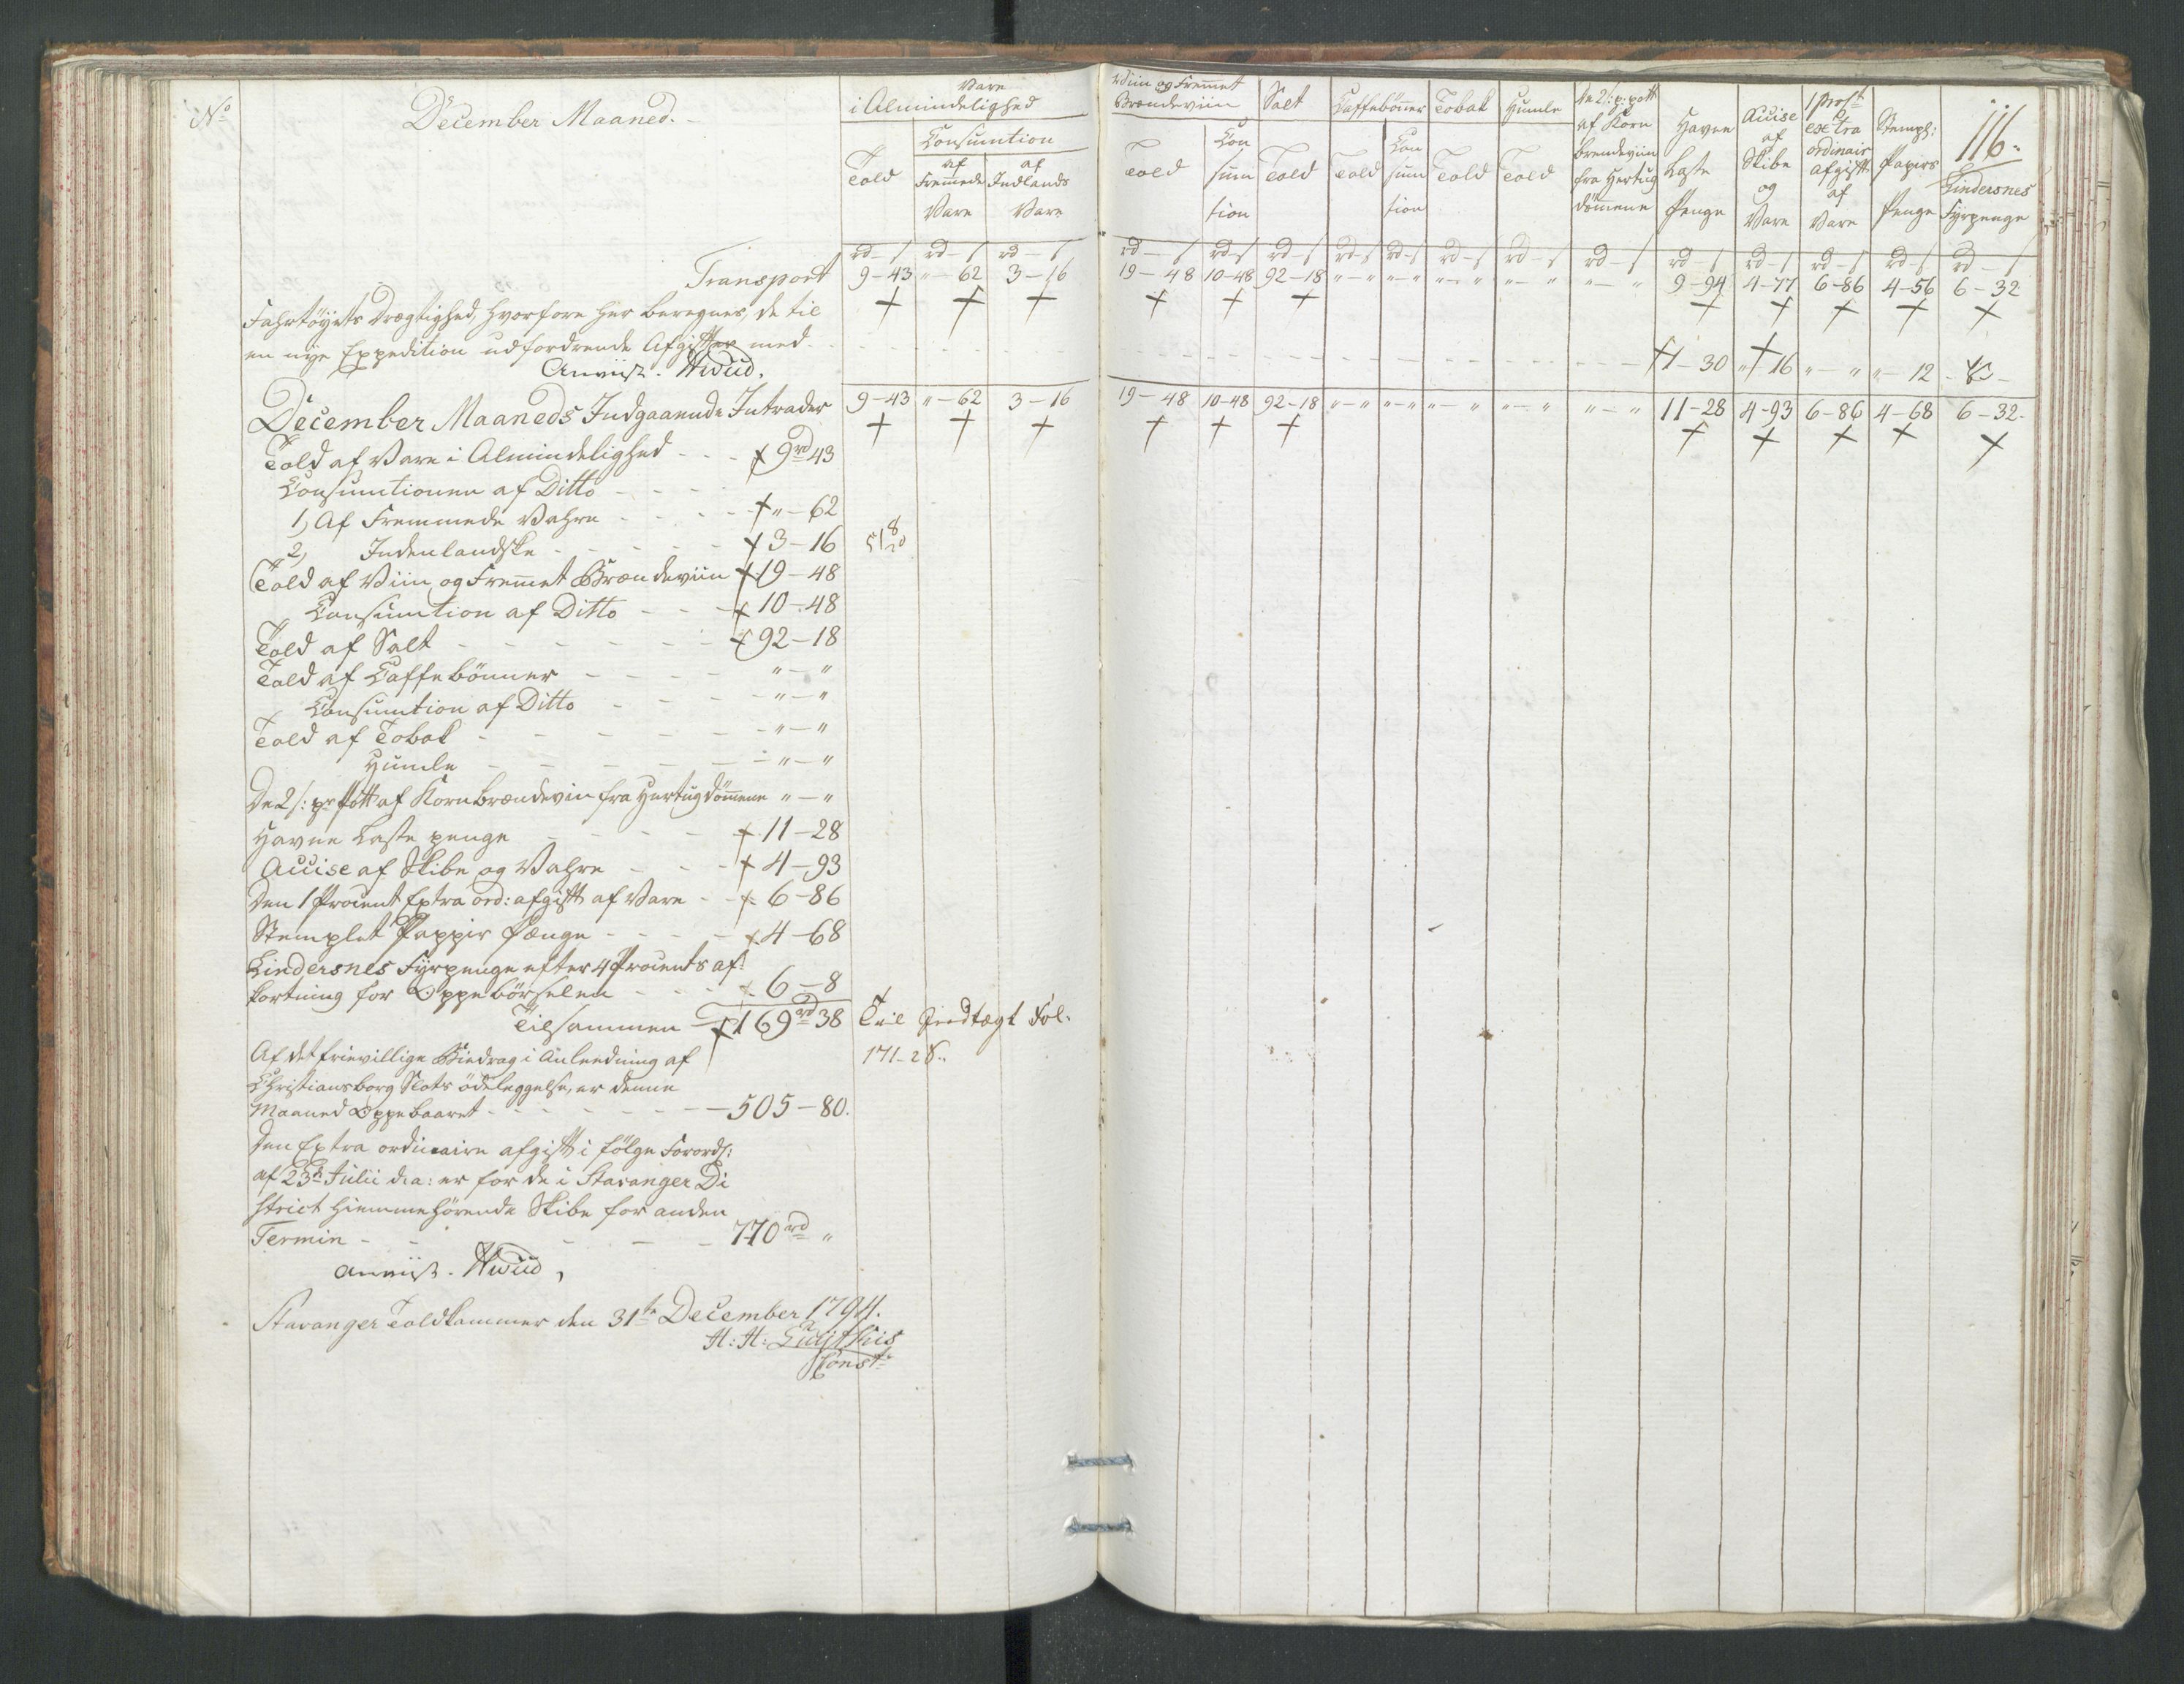 No
December Maaned.
Vare
i Almindelighed
Told
Consumtion
af Fremmede Vare
af Indlands Vare
Viin og Fremmet Brændeviin
Told
Consumtion
Salt
Told
Caffebønner
Told
Consumtion
Tobak
Told
Humle
Told
De 2 s: p: pott af Korn brendeviin fra Hertugdømmene
Havne Laste Penge
Accise af Skibe og Vare
1 Pros: extra ordinair afgift af Vare
Stempl: Papirs Penge
116.
Lindersnes Fyrpenge
rd — s rd — s rd — s rd — s rd - s rd — s rd - s rd - s rd — s rd — s rd — s rd — s rd — s rd — s rd — s rd — s
Transport 9-43 "-62 3-16 19-48 10-48 92-18 "-" "-" "-" "-" "-" 9-94 4-77 6-86 4-56 6-32
Fahrtøyets Drægtighed, hvorfore her beregnes, de til
en nye Expedition udfordrende Afgifter med 1-30 "-16 "-" "-12
Anviist.
December Maaneds Indgaaende Intrader 9-43 "-62 3-16 19-48 10-48 92-18 "-" "-" "-" "-" "-" 11-28 4-93 6-86 4-68 6-32.
Told af Vare i Almindelighed - - - 9rd 43
Consumtionen af Ditto - - - -
1) Af Fremmede Vahre - - - - "-62
2) Indenlandske - - - - 3-16
Told af Viin og Fremmet Brændeviin 19-48
Consumtion af Ditto - - - 10-48
Told af Salt - - - - - 92-18
Told af Caffebønner - - - - "-"
Consumtion af Ditto - - - "-"
Told af Tobak - - - - - "-"
Humle - - - - - "-"
De 2 s: pr Pott af Kornbrændevin fra Hertugdømmene "-"
Havne Laste penge - - - - 11-28
Accise af Skibe og Vahre - - - 4-93
Den 1 Procent Extra ord: afgift af Vare - - 6-86
Stemplet Pappir Penge - - - - 4-68
Lindersnes Fyrpenge efter 4 Procents af-
kortning for Oppebørselen - - - 6-8
Tilsammen - 169rd 38
Til Indtægt Fol.
171-28.
Af det frievillige Biedrag i Anleedning af
Christiansborg Slots ødeleggelse, er denne
Maaned Oppebaaret - - - - - - 505-80.
Den Extra ordinaire afgift i følge Forord:
af 23de Julii d: a: er for de i Stavanger Di
strict hiemmehørende Skibe for anden
Termin - - - - - 770rd "
Anviist.
Stavanger Toldkammer den 31te December 1794.
H: H:
Const: